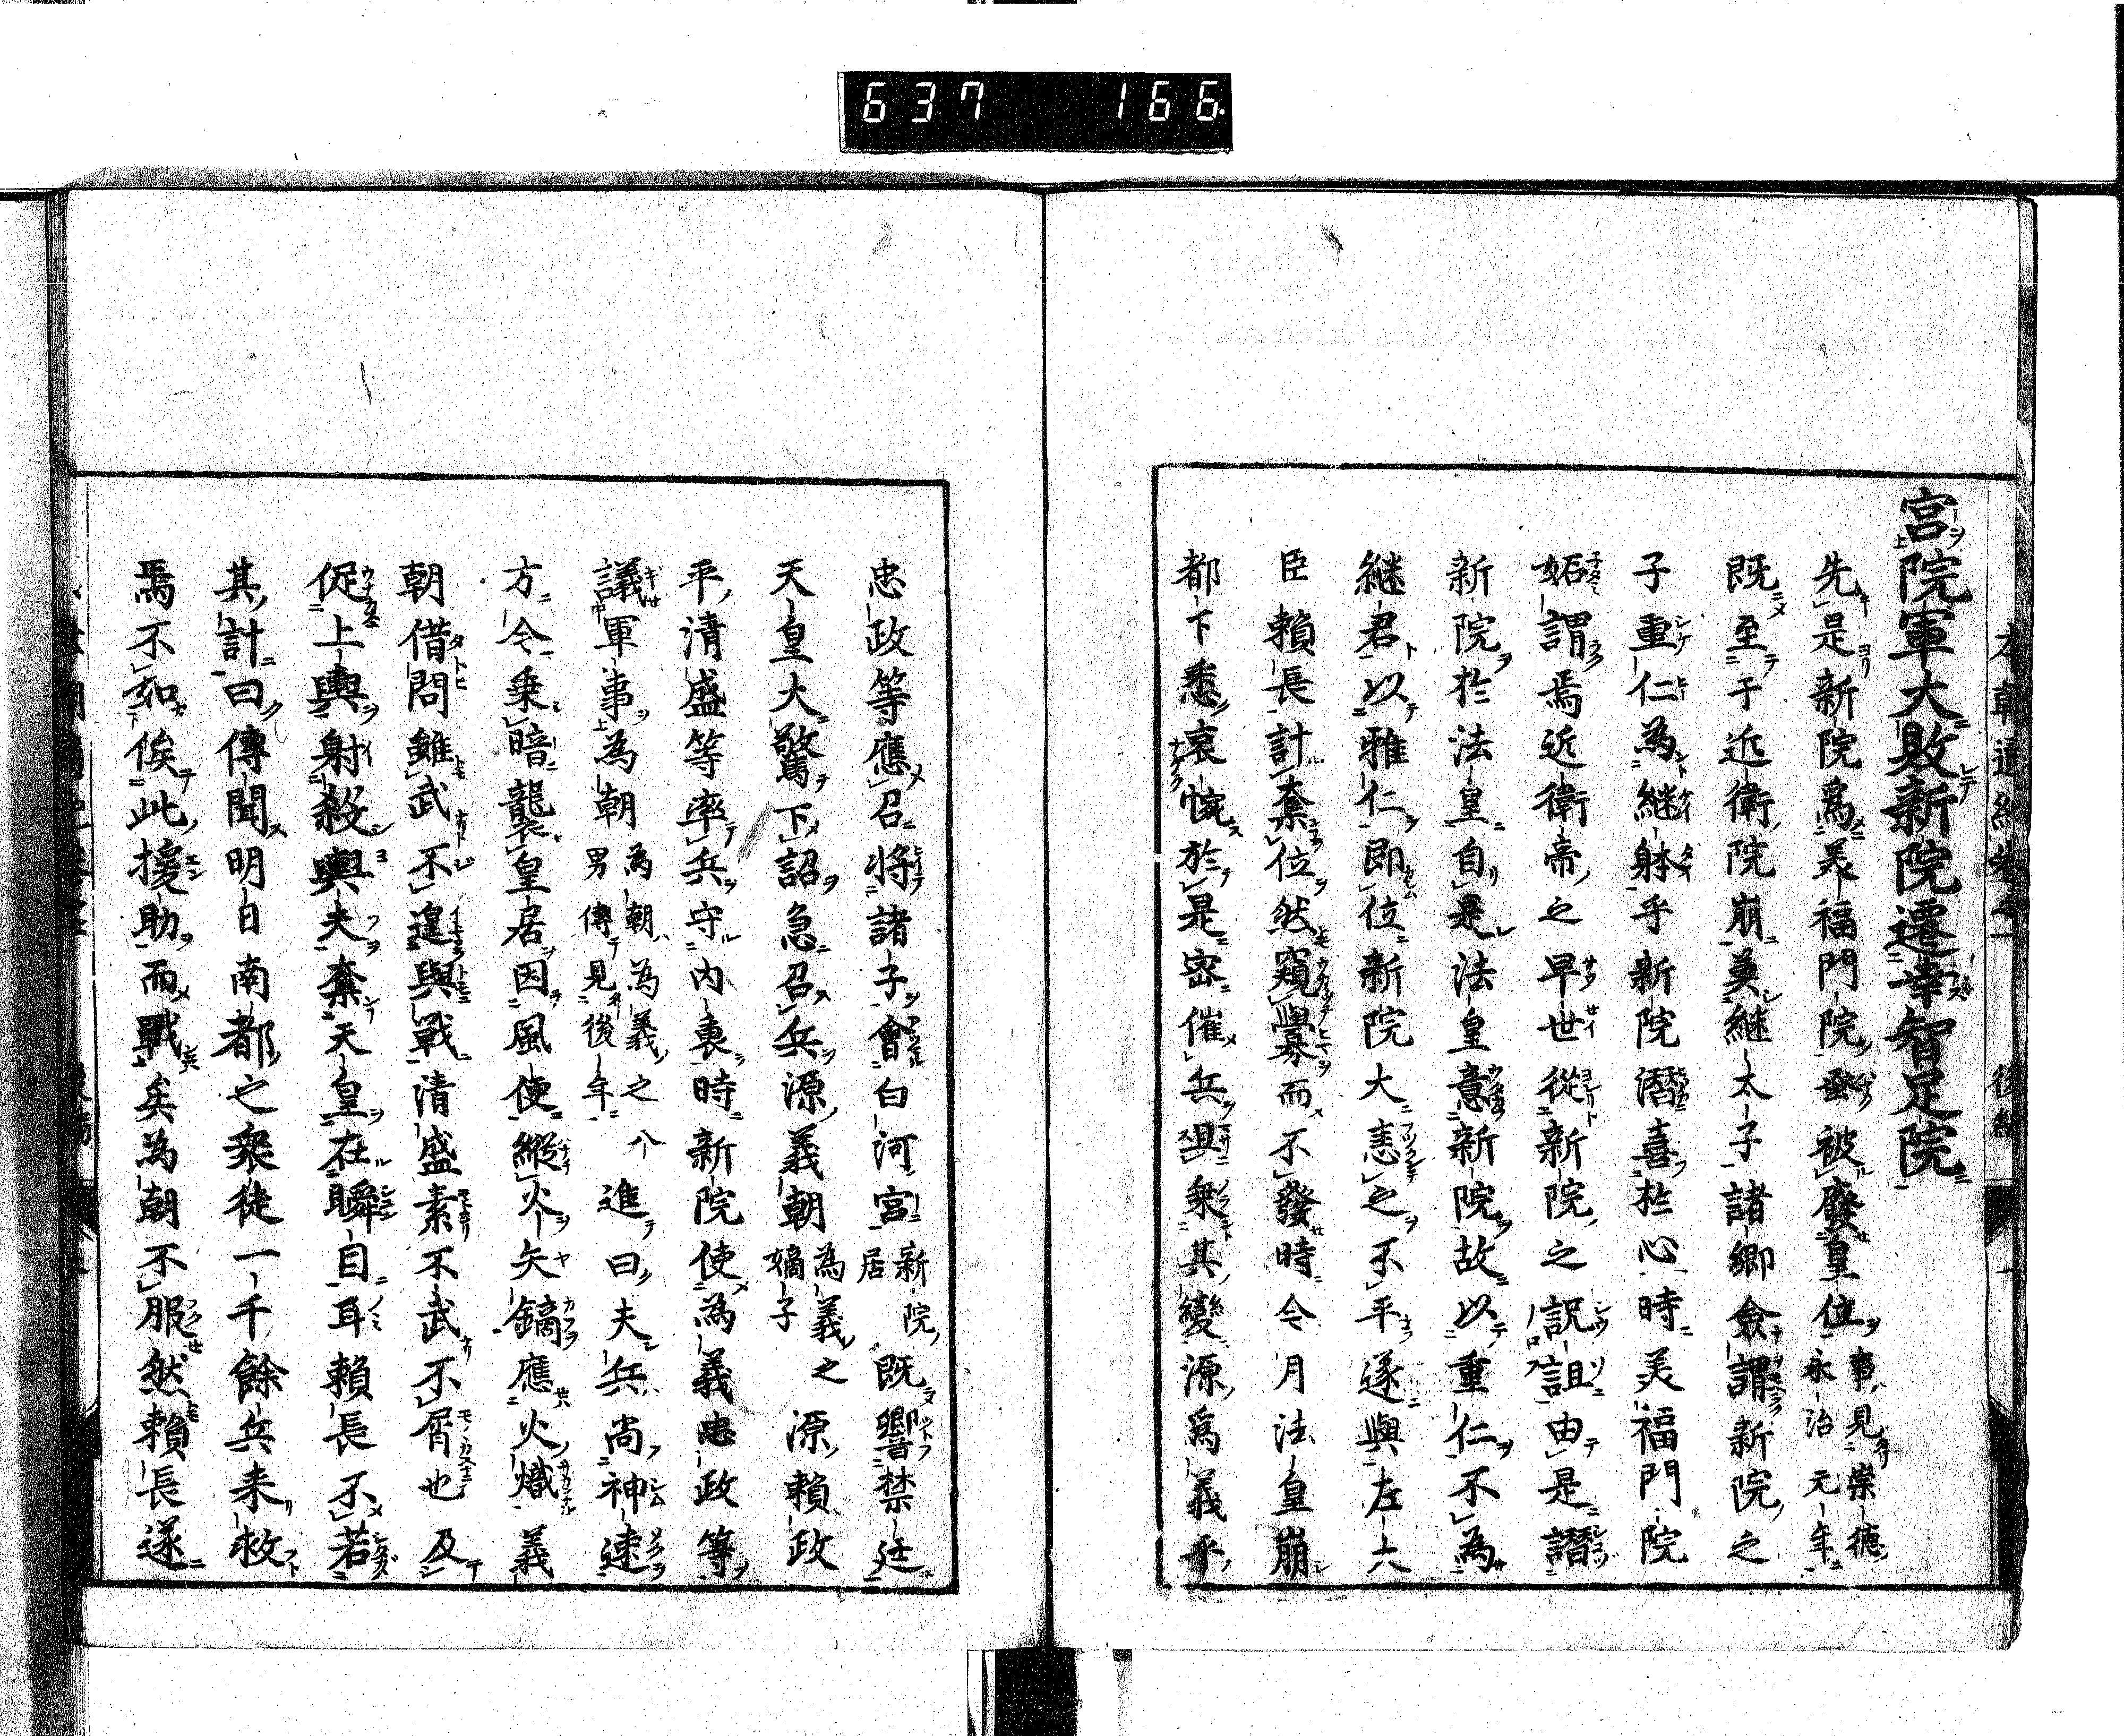 637 166
宮院軍大敗新院遷幸智足院
先是新院爲美福門院蚤被廢皇位事見崇德永治元年
既至于近衛院崩莫継太子諸卿僉謂新院之
子重仁為継躰乎新院潛喜於心時美福門院
妬謂焉近衛帝之早世從新院之詋詛由是譖
新院於法皇自是法皇意新院故以重仁不為
継君以雅仁即位新院大恚之不平遂與左大
臣賴長計奪位然窺釁而不發時令月法皇崩
都下悉哀惋於是密催兵且衆其變源爲義平
忠政等應召將諸子會白河宮新院居既響禁廷
天皇大驚下詔急召兵源義朝為義之嫡子源賴政
平清盛等率兵守內裏時新院使為義忠政等
議軍事為朝為朝為義之八男傳見後年進曰夫兵尚神速
方今乗暗襲皇居因風便縱火矢鏑應火熾義
朝借問雖武不遑與戰清盛素不武不屑也及
促上輿射殺輿夫奪天皇在瞬目耳賴長不若
其計曰傳聞明日南都之衆徒一千餘兵来救
焉不如俟此援助而戰矣為朝不服然賴長遂